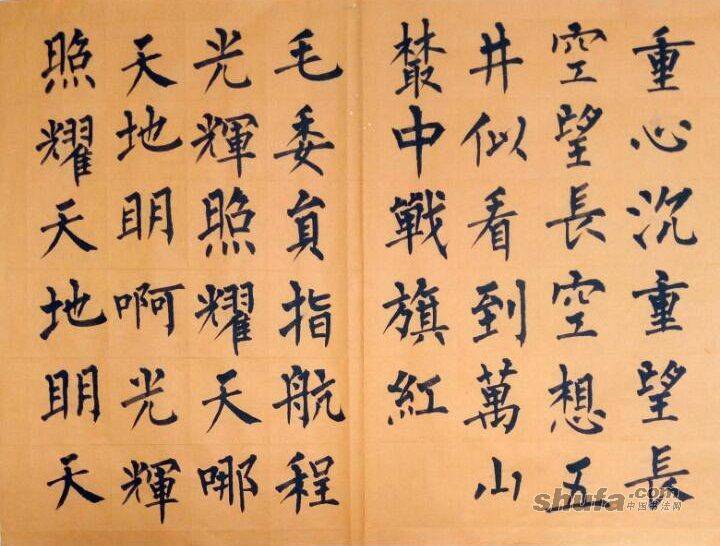 重心沉重望長
空望長空想五
井似看到萬山
叢中戰旗紅
毛委員指航程
光輝照耀天哪
天地明啊光輝
照耀天地明天
shufa.com
中国书法网